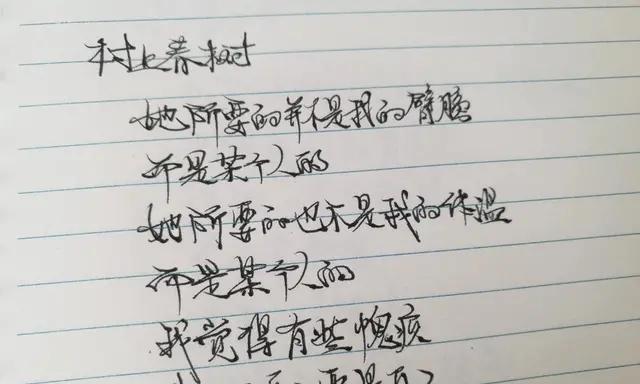 村上春树
她所要的并不是我的臂膀
而是某个人的
她所要的也不是我的体温
而是某个人的
我觉得有些愧疚